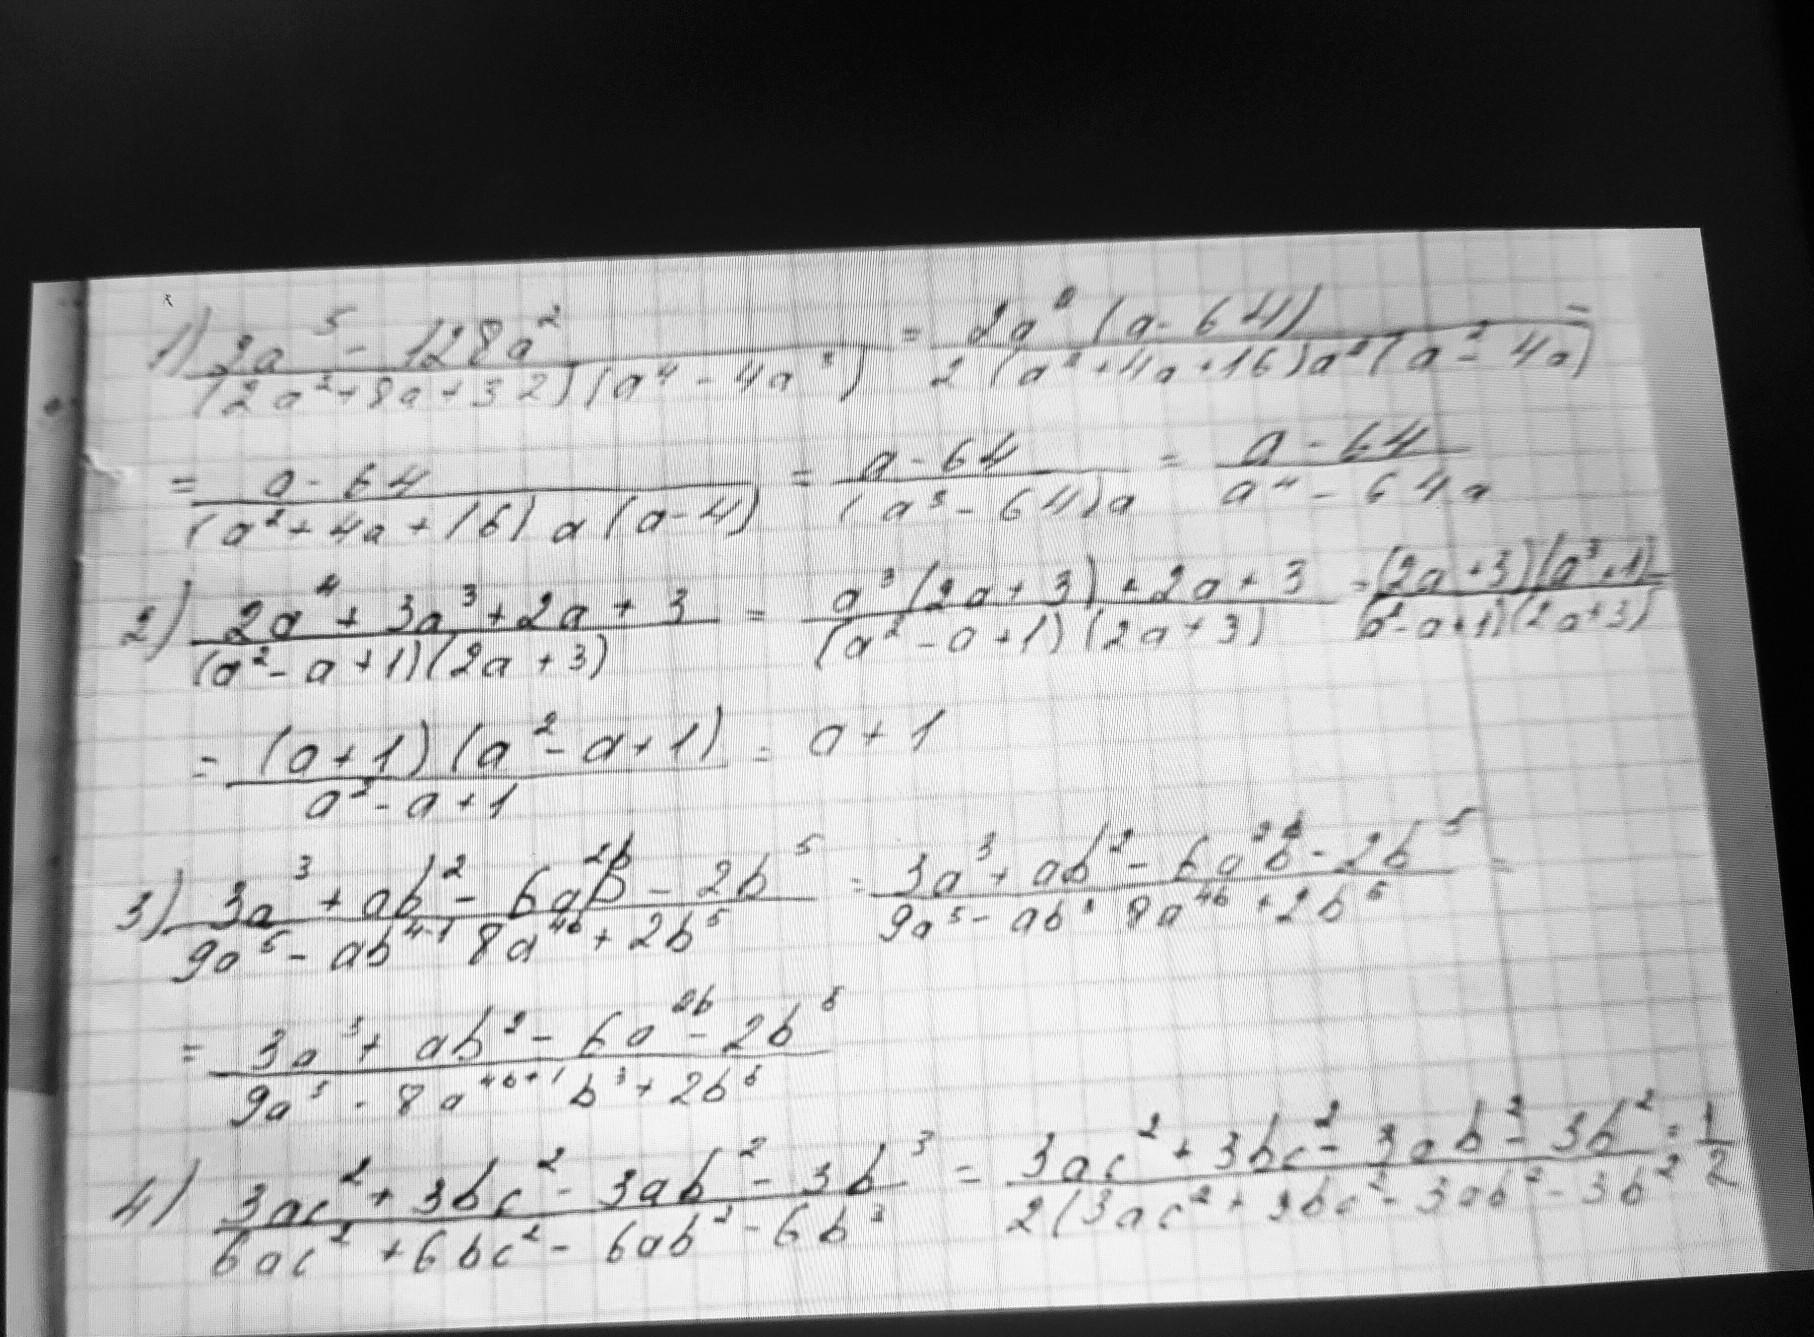 1) (2a⁵ - 128a²)/((2a²+8a+32)(a⁴ - 4a³)) = (2a² (a - 64))/(2 (a²+4a+16)a²(a² - 4a)) =
= (a - 64)/((a² + 4a + 16) a (a - 4)) = (a - 64)/((a³ - 64)a) = (a - 64)/(a⁴ - 64a)
2) (2a⁴ + 3a³ + 2a + 3)/((a² - a + 1)(2a + 3)) = (a³(2a + 3) + 2a + 3)/((a² - a + 1)(2a + 3)) = ((2a + 3)(a³ + 1))/((a² - a + 1)(2a + 3))
= ((a + 1)(a² - a + 1))/(a² - a + 1) = a + 1
3) (3a³ + ab² - 6a²ᵇ - 2b⁵)/(9a⁵ - ab⁴⁻¹ 8a⁴ᵇ + 2b⁵) = (3a³ + ab² - 6a²ᵇ - 2b⁵)/(9a⁵ - ab³ 8a⁴ᵇ + 2b⁵) =
= (3a³ + ab² - 6a²ᵇ - 2b⁵)/(9a⁵ - 8a⁴ᵇ⁺¹ b³ + 2b⁵)
4) (3ac² + 3bc² - 3ab² - 3b³)/(6ac² + 6bc² - 6ab² - 6b³) = (3ac² + 3bc² - 3ab² - 3b²)/(2(3ac² + 3bc² - 3ab² - 3b²) = 1/2